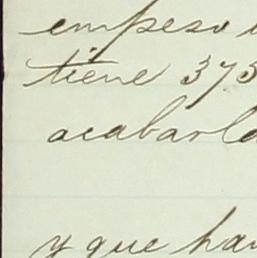 empeso
tiene 373
acabarla
y que han